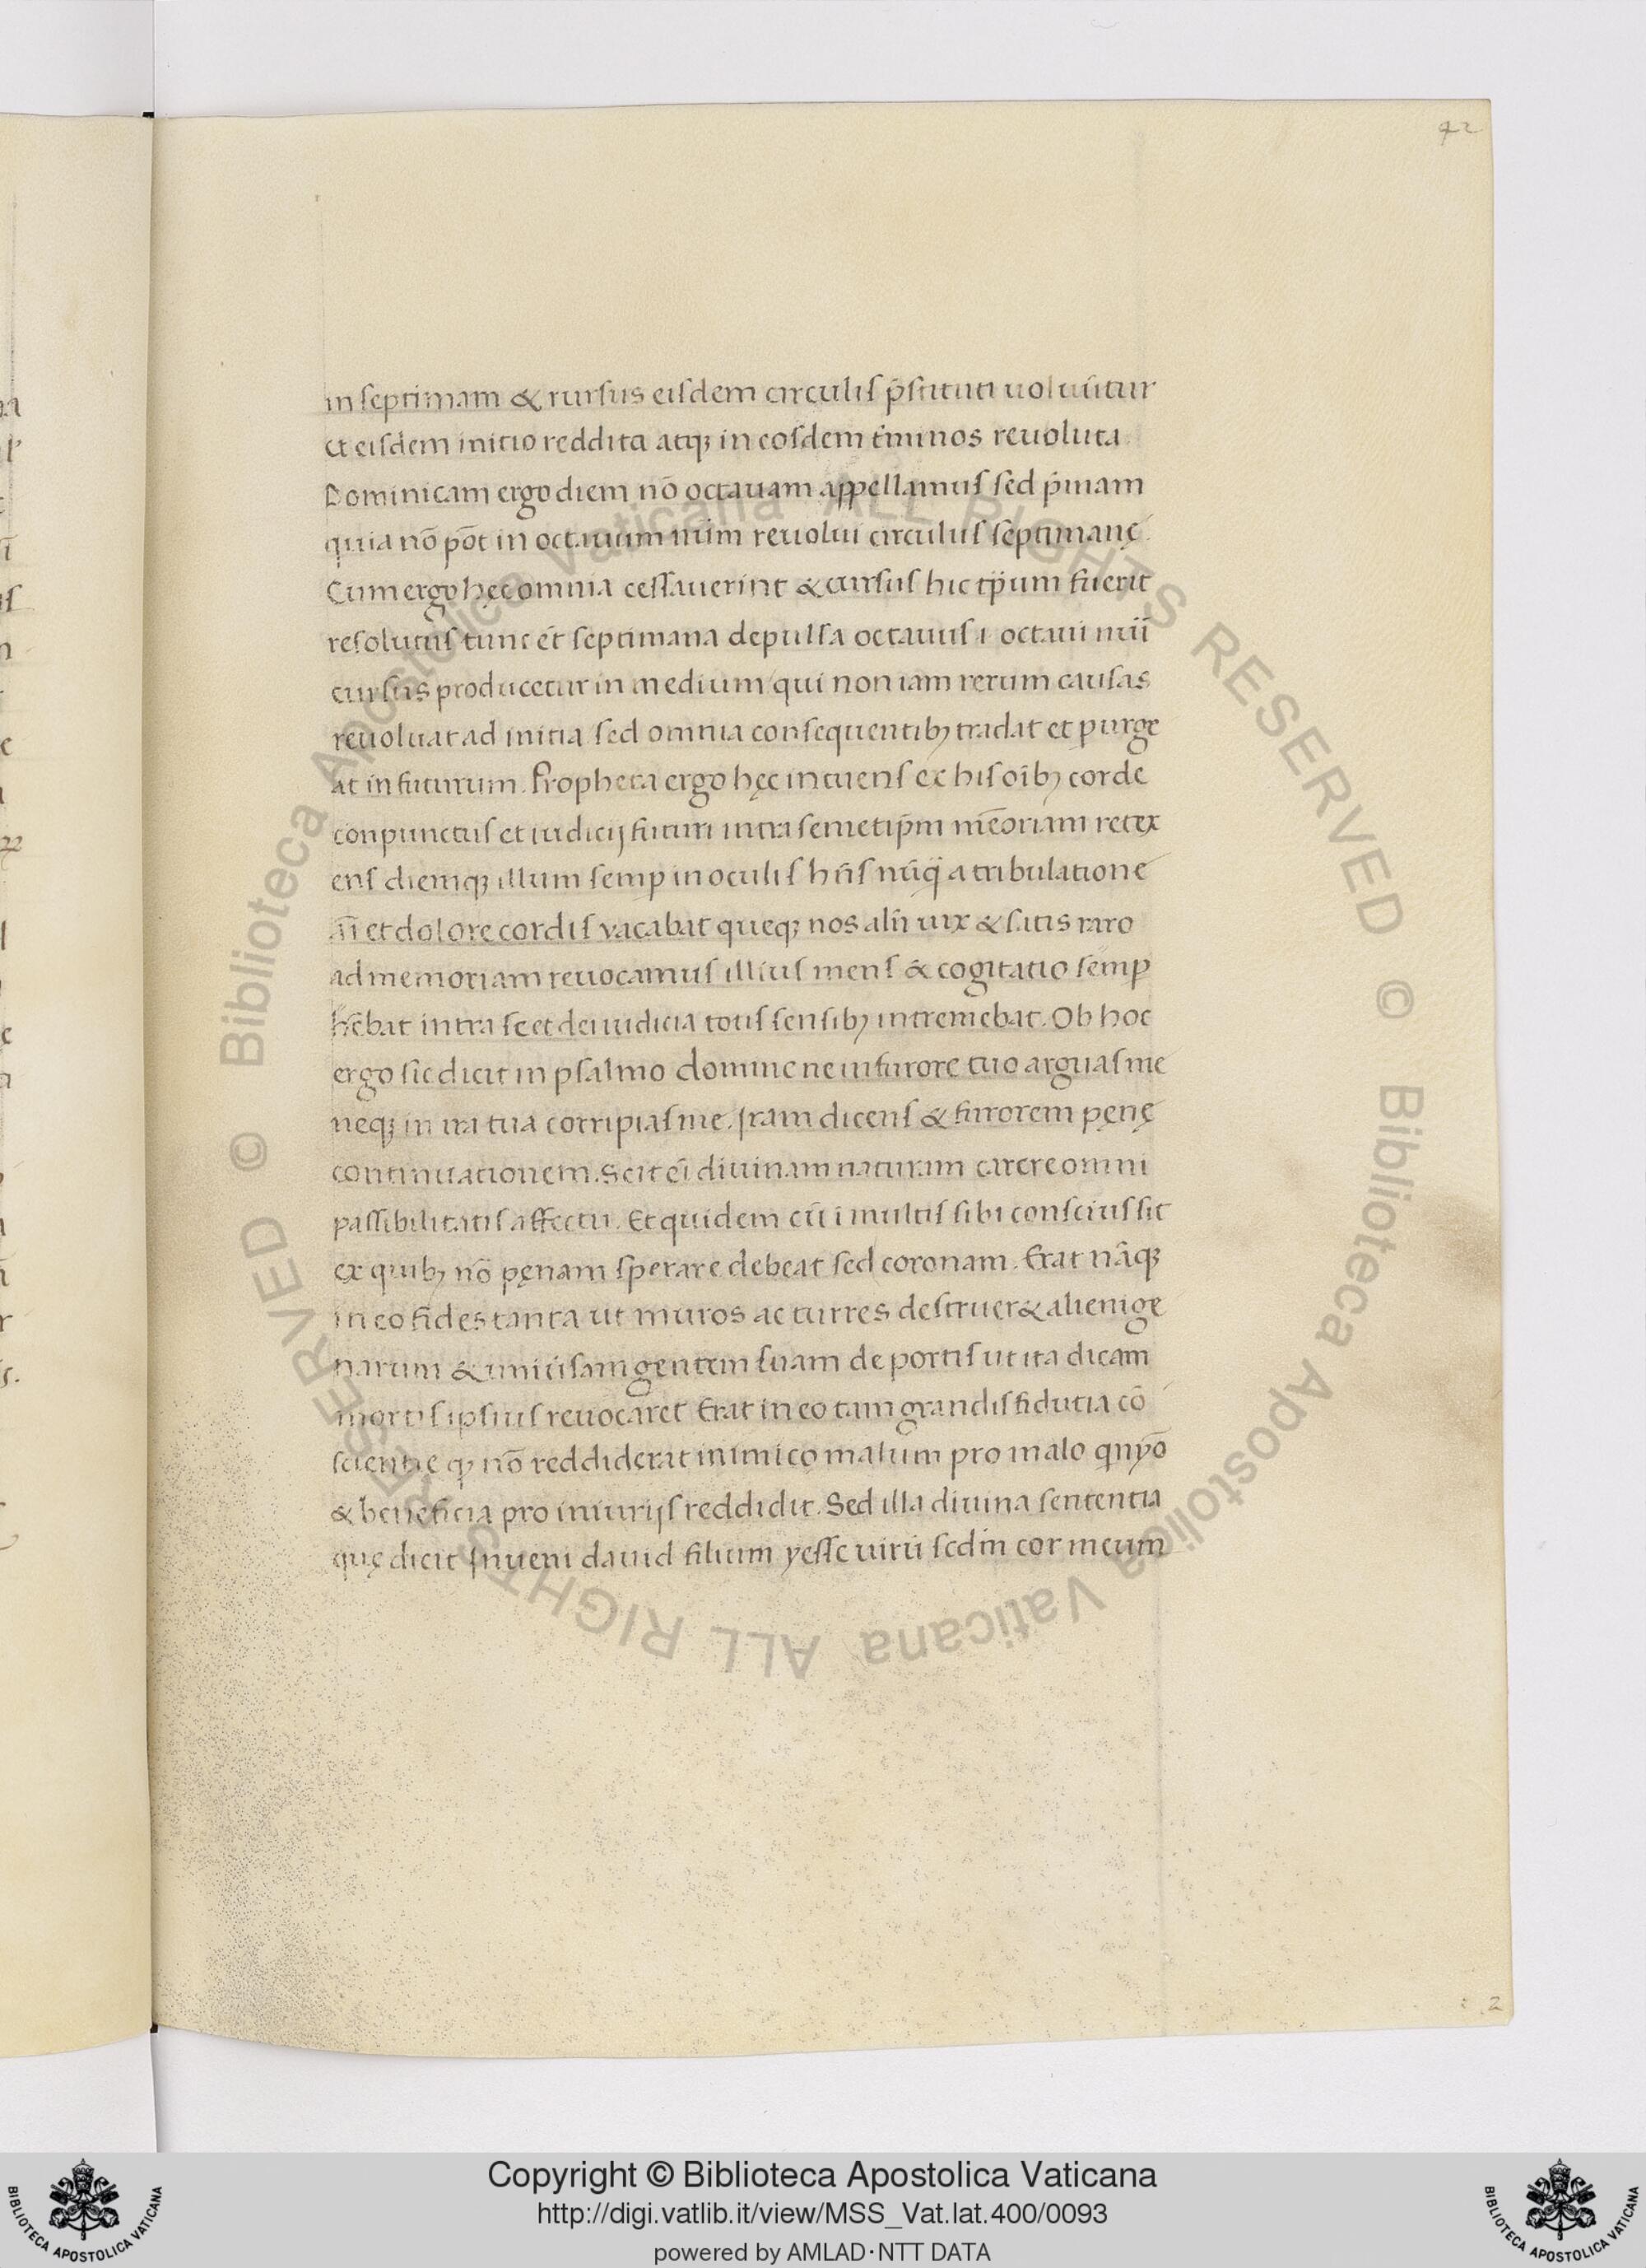 42
in septimam & rursus eisdem circulis p̄stituti uoluūtur
et eisdem initio reddita atq; in eosdem t̉minos reuoluta.
Dominicam ergo diem nō octauam appellamus sed p̉mam
quia nō pōt in octauum num̄ reuolui circulus septimanę.
Cum ergo hęc omnia cessauerint & cursus hic tp̄um fuerit
resolutus tunc et septimana depulsa octauus .i. octaui mūi
cursus producetur in medium qui non iam rerum causas
reuoluat ad initia sed omnia consequentib; tradat et purge
at in futurum. Propheta ergo hęc intuens ex his oīb; corde
conpunctus et iudicij futuri intra semetip̄m mēoriam retex
ens diemq; illum semp in oculis hn̄s nūq̄ a tribulatione
aī et dolore cordis vacabat queq; nos aln̄ uix & satis raro
ad memoriam reuocamus illius mens & cogitatio semp
hēbat intra se et dei iudicia totis sensib; intremebat. Ob hoc
ergo sic dicit in psalmo domine ne in furore tuo arguas me
neq; in ira tua corripias me. Iram dicens & furorem pęnę
continuationem. Scit eī diuinam naturam carere omni
passibilitatis affectu. Et quidem cū i multis sibi conscius sit
ex quib; nō pęnam sperare debeat sed coronam. Erat nāq;
in eo fides tanta ut muros ac turres destruer& alienige
narum & uniūsam gentem suam de portis ut ita dicam
mortis ipsius reuocaret Erat in eo tam grandis fidutia cō
scientie q; nō reddiderat inimico malum pro malo
& beneficia pro iniurijs reddidit. Sed illa diuina sententia
quę dicit Inueni dauid filium yesse uirū scdm̄ cor meum
Copyright © Biblioteca Apostolica Vaticana
http://digi.vatlib.it/view/MSS_Vat.lat.400/0093
powered by AMLAD·NTT DATA